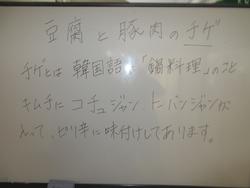 豆腐と豚肉のチゲ
チゲとは韓国語で「鍋料理」のこと
キムチにコチュジャン、トバンジャンが
入って、ピリ辛に味付けしてあります。